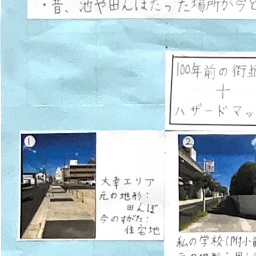 ・昔、池や田んぼだった場所が今と
100年前の街並
＋
ハザードマッ
1
大幸エリア
元の地形：
田んぼ
今のすがた：
住宅地
2
私の学校(附小前
元の地形：田し